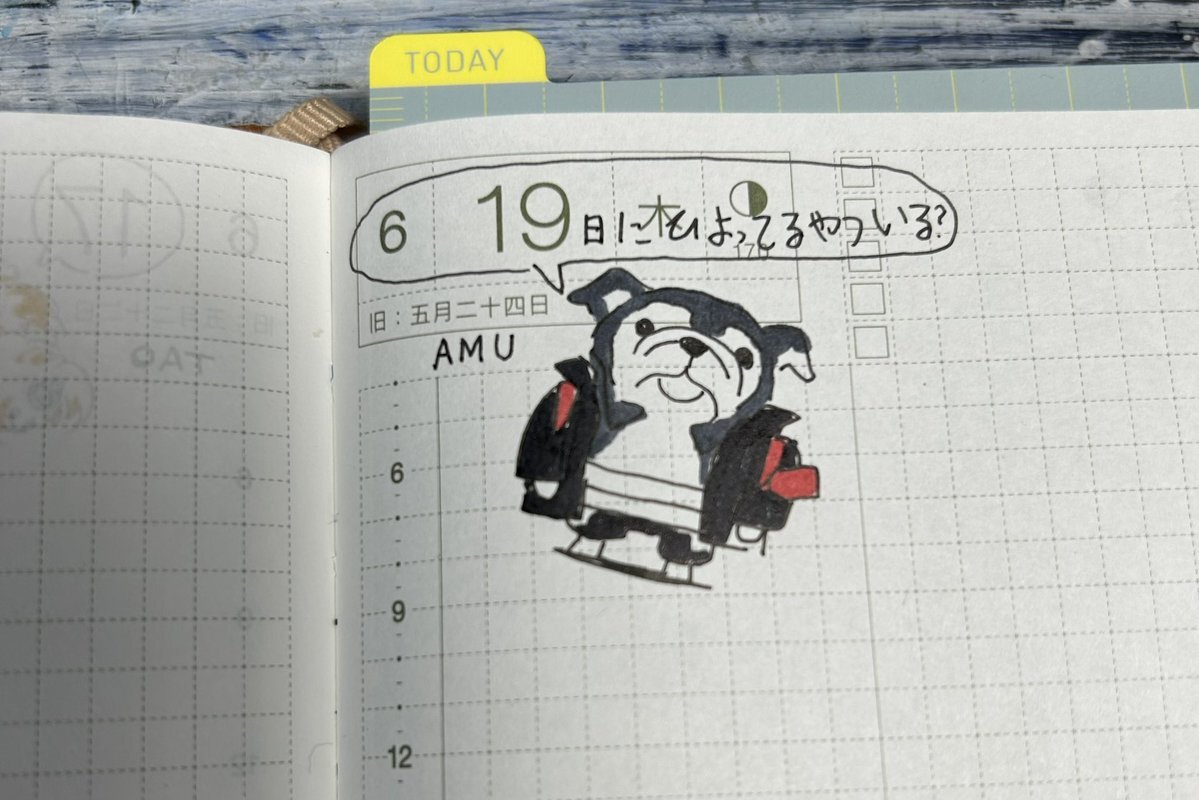 TODAY
6 19日に木をひよってるやついる?
旧：五月二十四日
AMU
6
9
12